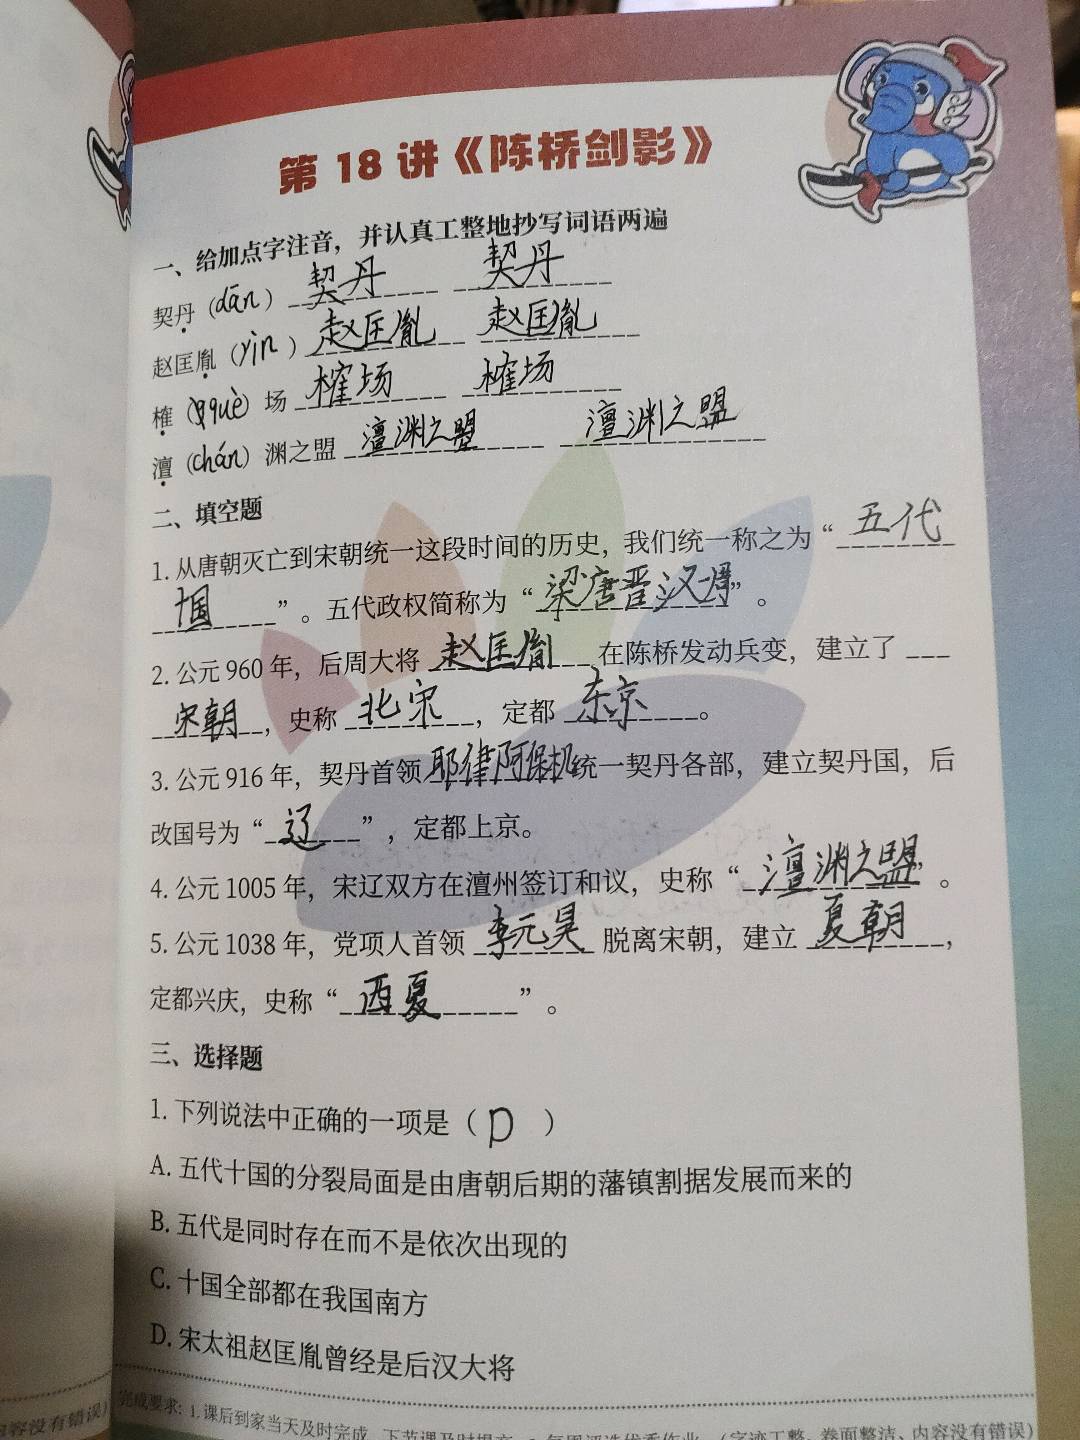 第 18 讲《陈桥剑影》
一、给加点字注音，并认真工整地抄写词语两遍
契丹（dān）契丹 契丹
赵匡胤（yìn）赵匡胤 赵匡胤
榷（què）场 榷场 榷场
澶（chán）渊之盟 澶渊之盟 澶渊之盟
二、填空题
1. 从唐朝灭亡到宋朝统一这段时间的历史，我们统一称之为“五代
十国”。五代政权简称为“梁唐晋汉周”。
2. 公元 960 年，后周大将 赵匡胤 在陈桥发动兵变，建立了
宋朝，史称 北宋，定都 东京。
3. 公元 916 年，契丹首领 耶律阿保机 统一契丹各部，建立契丹国，后
改国号为“辽”，定都上京。
4. 公元 1005 年，宋辽双方在澶州签订和议，史称“澶渊之盟”。
5. 公元 1038 年，党项人首领 李元昊 脱离宋朝，建立 夏朝，
定都兴庆，史称“西夏”。
三、选择题
1. 下列说法中正确的一项是（D）
A. 五代十国的分裂局面是由唐朝后期的藩镇割据发展而来的
B. 五代是同时存在而不是依次出现的
C. 十国全部都在我国南方
D. 宋太祖赵匡胤曾经是后汉大将
内容没有错误）
完成要求：1. 课后到家当天及时完成，下节课及时提交 2. 每周评选优秀作业。（字迹工整、卷面整洁、内容没有错误）